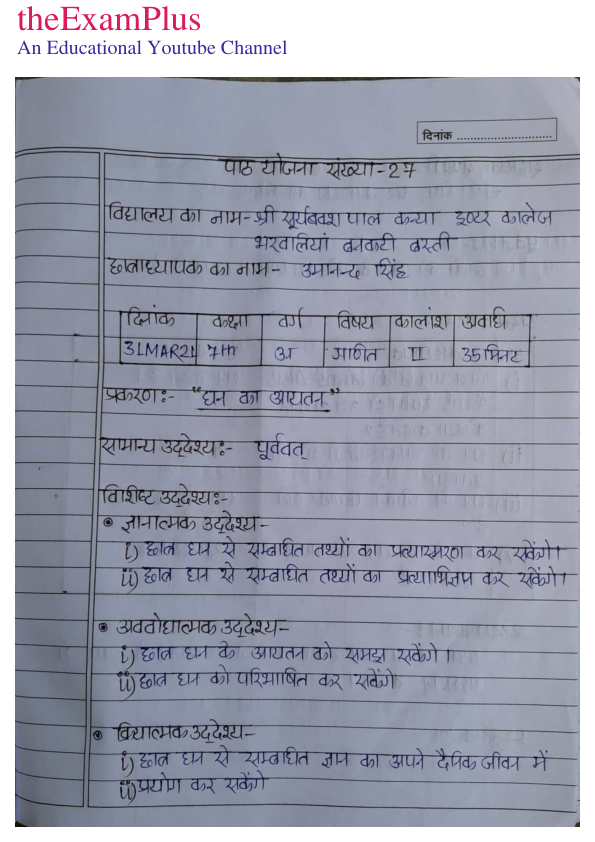 theExamPlus
An Educational Youtube Channel
दिनांक
पाठ योजना संख्या-27
विद्यालय का नाम- श्री सूर्यबक्श पाल कन्या इण्टर कालेज
भरवलियां बनकटी बस्ती
छात्राध्यापक का नाम- उमानन्द सिंह
दिनांक कक्षा वर्ग विषय कालांश अवधि
31MAR21 7th अ गणित II 35 मिनट
प्रकरण:- "घन का आयतन"
सामान्य उद्देश्य:- पूर्ववत्
विशिष्ट उद्देश्य:-
• ज्ञानात्मक उद्देश्य-
i) छात्र घन से सम्बंधित तथ्यों का प्रत्यास्मरण कर सकेंगे।
ii) छात्र घन से सम्बंधित तथ्यों का प्रत्याभिज्ञान कर सकेंगे।
• अवबोधात्मक उद्देश्य-
i) छात्र घन के आयतन को समझ सकेंगे।
ii) छात्र घन को परिभाषित कर सकेंगे
• क्रियात्मक उद्देश्य-
i) छात्र घन से सम्बंधित ज्ञान का अपने दैनिक जीवन में
ii) प्रयोग कर सकेंगे